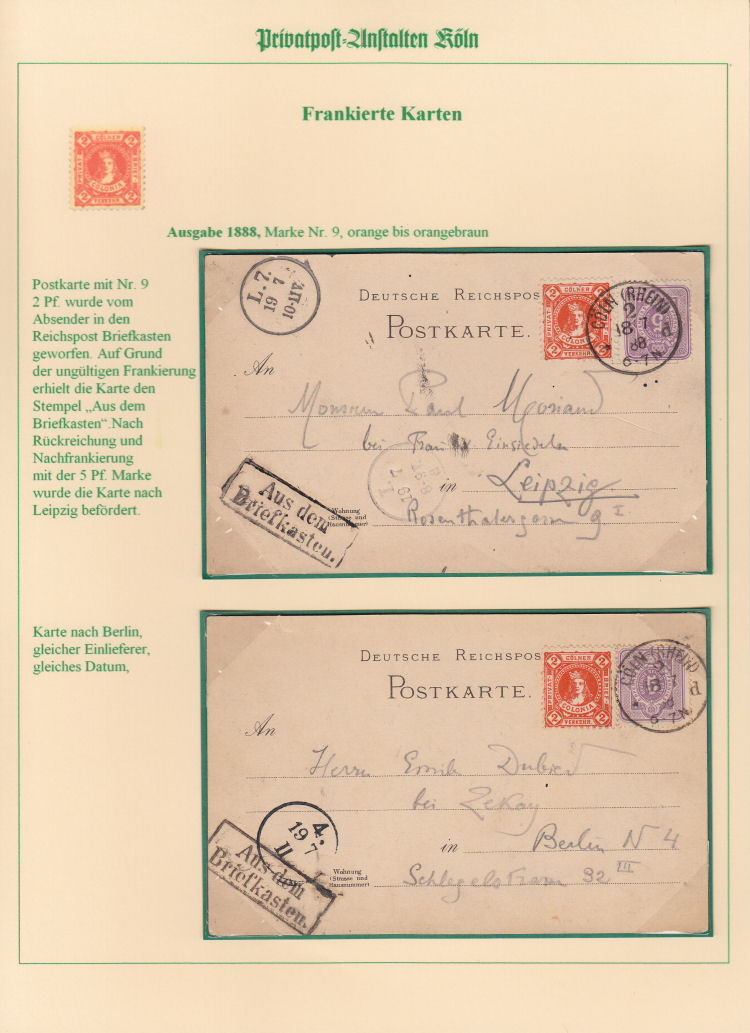 Privatpost-Anstalten Köln
Frankierte Karten
2 CÖLNER 2
PRIVAT- BRIEF-
COLONIA
2 VERKEHR. 2
Ausgabe 1888, Marke Nr. 9, orange bis orangebraun
Postkarte mit Nr. 9
2 Pf. wurde vom
Absender in den
Reichspost Briefkasten
geworfen. Auf Grund
der ungültigen Frankierung
erhielt die Karte den
Stempel „Aus dem
Briefkasten".Nach
Rückreichung und
Nachfrankierung
mit der 5 Pf. Marke
wurde die Karte nach
Leipzig befördert.
L. 7.
19 7
10-11V.
DEUTSCHE REICHSPOS
POSTKARTE.
2 CÖLNER 2
PRIVAT- BRIEF-
COLONIA
2 VERKEHR. 2
CÖLN (RHEIN)
18 7
88
6-7N
d
An
Monsieur Paul
bei Frau Einsiedeln
in Leipzig
Wohnung
(Strasse und
Hausnummer)
9 I
Aus dem
Briefkasten.
Karte nach Berlin,
gleicher Einlieferer,
gleiches Datum,
DEUTSCHE REICHSPOS
POSTKARTE.
2 CÖLNER 2
PRIVAT- BRIEF-
COLONIA
2 VERKEHR. 2
CÖLN (RHEIN)
18 7
6-7N
d
An
Herrn Emile Dubied
bei Zekay
in Berlin N 4
Wohnung
(Strasse und
Hausnummer)
32 III
4.
19 7
II
Aus dem
Briefkasten.